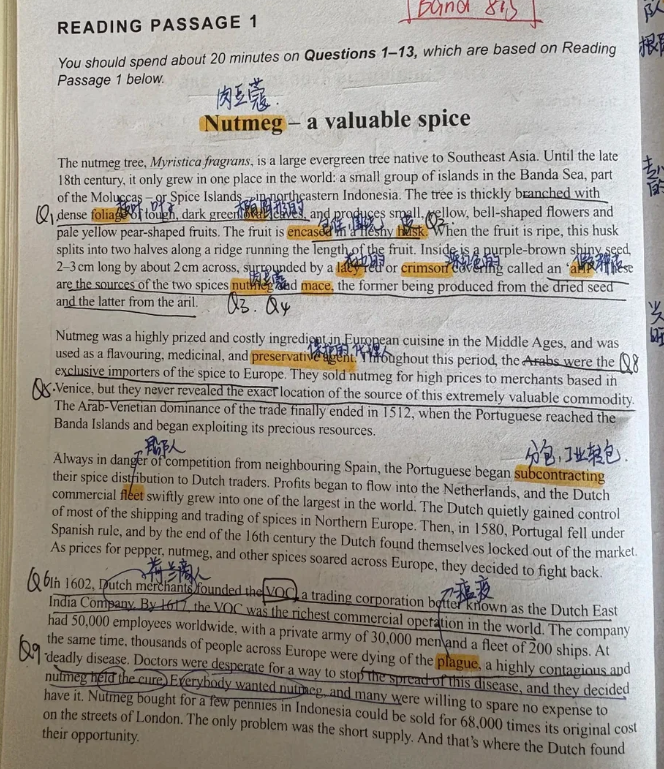 Band 8.5
READING PASSAGE 1
You should spend about 20 minutes on Questions 1–13, which are based on Reading
Passage 1 below.
肉豆蔻
Nutmeg – a valuable spice
The nutmeg tree, Myristica fragrans, is a large evergreen tree native to Southeast Asia. Until the late
18th century, it only grew in one place in the world: a small group of islands in the Banda Sea, part
of the Moluccas – or Spice Islands – in northeastern Indonesia. The tree is thickly branched with
Q1 dense foliage of tough, dark green leaves, and produces small, yellow, bell-shaped flowers and
Q2
pale yellow pear-shaped fruits. The fruit is encased in a fleshy husk. When the fruit is ripe, this husk
splits into two halves along a ridge running the length of the fruit. Inside is a purple-brown shiny seed,
2–3 cm long by about 2 cm across, surrounded by a lacy red or crimson covering called an
are the sources of the two spices nutmeg and mace, the former being produced from the dried seed
and the latter from the aril.
Q3. Q4
Nutmeg was a highly prized and costly ingredient in European cuisine in the Middle Ages, and was
used as a flavouring, medicinal, and preservative agent. Throughout this period, the Arabs were the Q8
exclusive importers of the spice to Europe. They sold nutmeg for high prices to merchants based in
Q5 Venice, but they never revealed the exact location of the source of this extremely valuable commodity.
The Arab-Venetian dominance of the trade finally ended in 1512, when the Portuguese reached the
Banda Islands and began exploiting its precious resources.
船队
分包,工业转包
Always in danger of competition from neighbouring Spain, the Portuguese began subcontracting
their spice distribution to Dutch traders. Profits began to flow into the Netherlands, and the Dutch
commercial fleet swiftly grew into one of the largest in the world. The Dutch quietly gained control
of most of the shipping and trading of spices in Northern Europe. Then, in 1580, Portugal fell under
Spanish rule, and by the end of the 16th century the Dutch found themselves locked out of the market.
As prices for pepper, nutmeg, and other spices soared across Europe, they decided to fight back.
荷兰商人
Q6 In 1602, Dutch merchants founded the VOC, a trading corporation better known as the Dutch East
瘟疫
India Company. By 1617, the VOC was the richest commercial operation in the world. The company
had 50,000 employees worldwide, with a private army of 30,000 men and a fleet of 200 ships. At
the same time, thousands of people across Europe were dying of the plague, a highly contagious and
Q9 deadly disease. Doctors were desperate for a way to stop the spread of this disease, and they decided
nutmeg held the cure. Everybody wanted nutmeg, and many were willing to spare no expense to
have it. Nutmeg bought for a few pennies in Indonesia could be sold for 68,000 times its original cost
on the streets of London. The only problem was the short supply. And that's where the Dutch found
their opportunity.